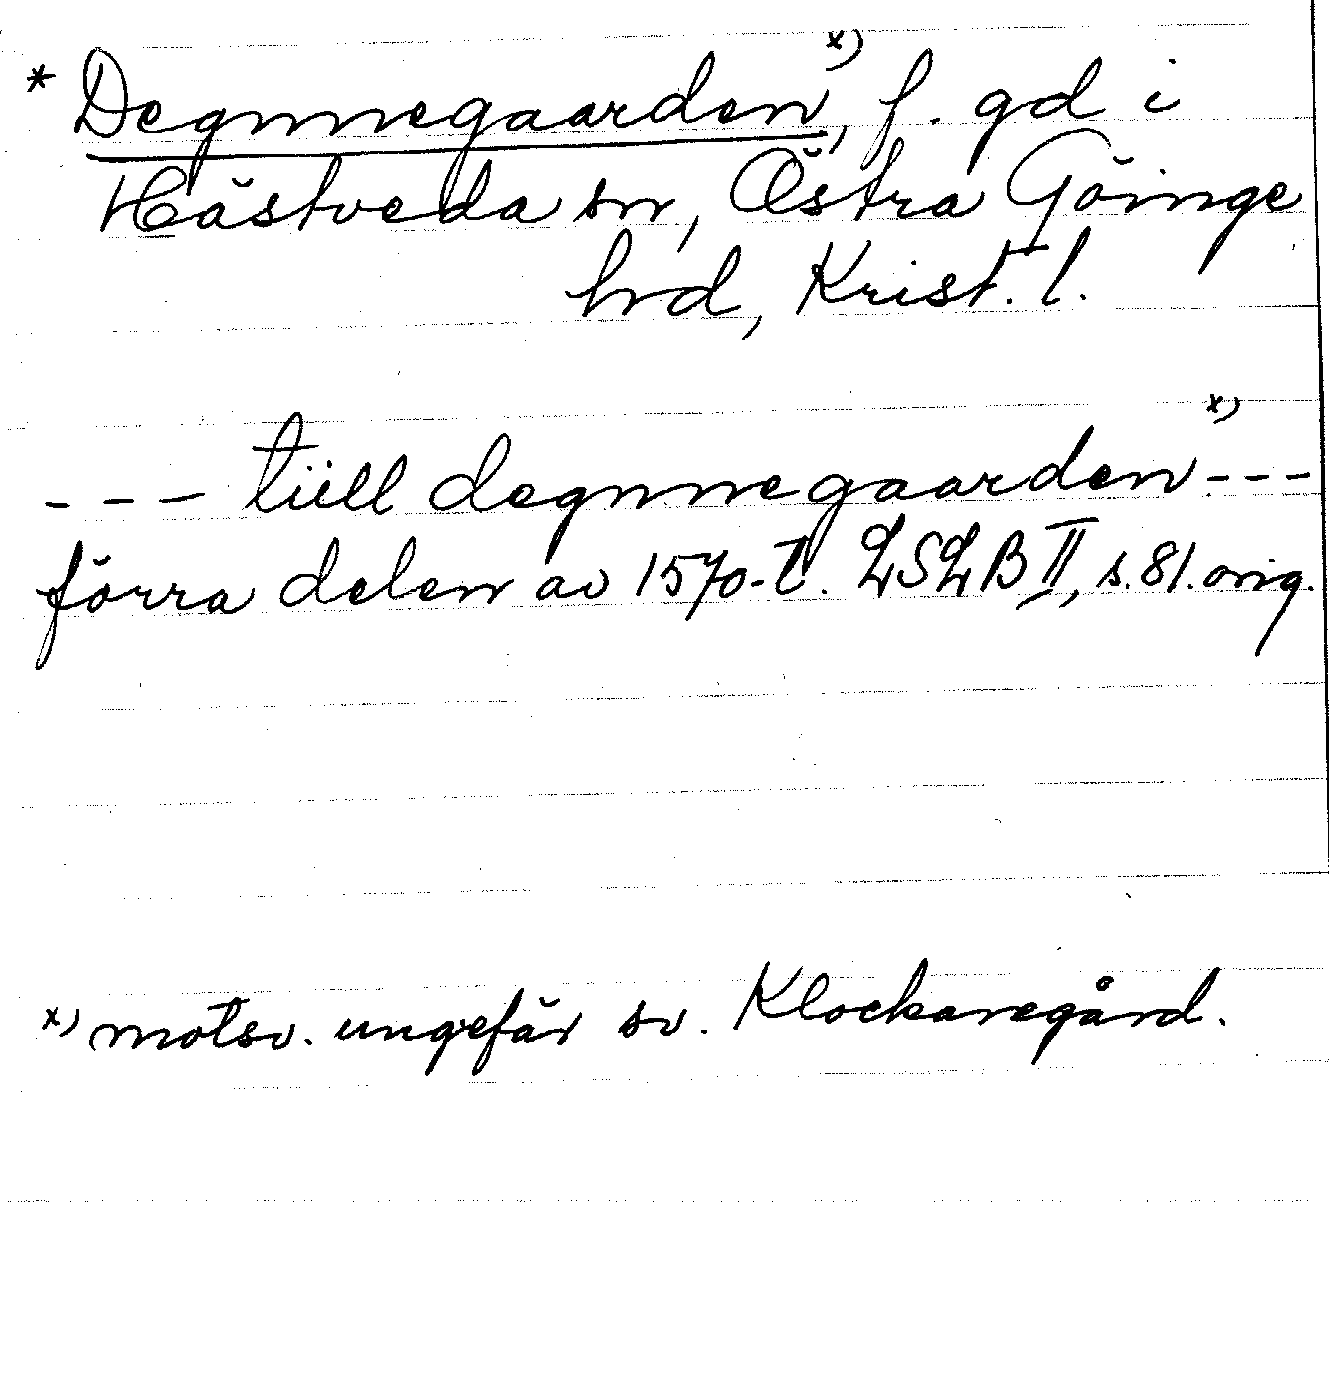 * Degnnegaarden x), f. gd i
Hästveda sn, Östra Göinge
hrd, Krist. l.
--- tiill degnnegaarden x) ---
förra delen av 1570-t. LSLB II, s. 81. orig.
x) motsv. ungefär sv. Klockaregård.